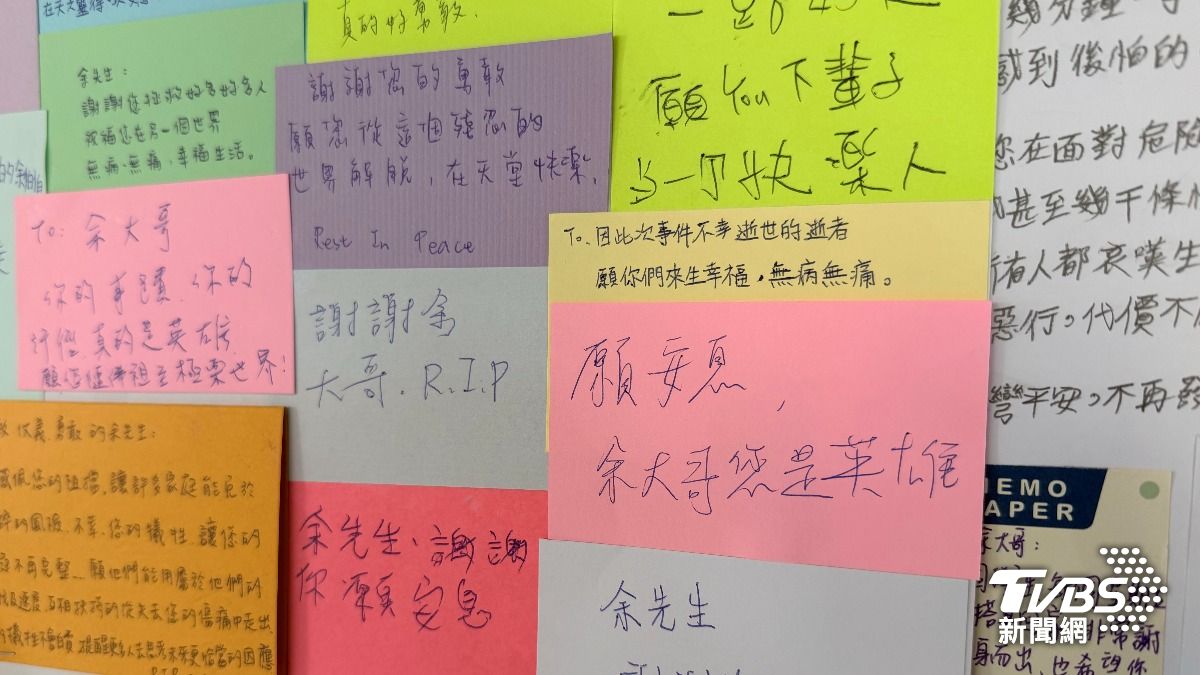 真的好勇敢.
余先生：
謝謝您拯救好多好多人
祝福您在另一個世界
無病、無痛、幸福生活。
謝謝您的勇敢
願您從這個殘忍的
世界解脫，在天堂快樂，
Rest In Peace
願You下輩子
當一個快樂人
幾分鐘
感到後怕的
您在面對危險
甚至幾千條
所有人都哀嘆生
惡行。代價不
灣平安。不再發
To: 余大哥
你的事蹟.你的
真的是英雄
極樂世界!
謝謝余
大哥. R.I.P
To. 因此次事件不幸逝世的逝者
願你們來生幸福，無病無痛。
願安息,
余大哥您是英雄
勇敢的余先生：
您的阻擋,讓許多家庭能免於
碎的風險.不幸,您的犧牲,讓您的
庭不再完整...願他們能用屬於他們的
互相扶持的從失去您的傷痛中走出.
余先生、謝謝
你 願安息
余先生
MEMO
PAPER
余大哥：
謝
身而出，也希望你
TVBS
新聞網